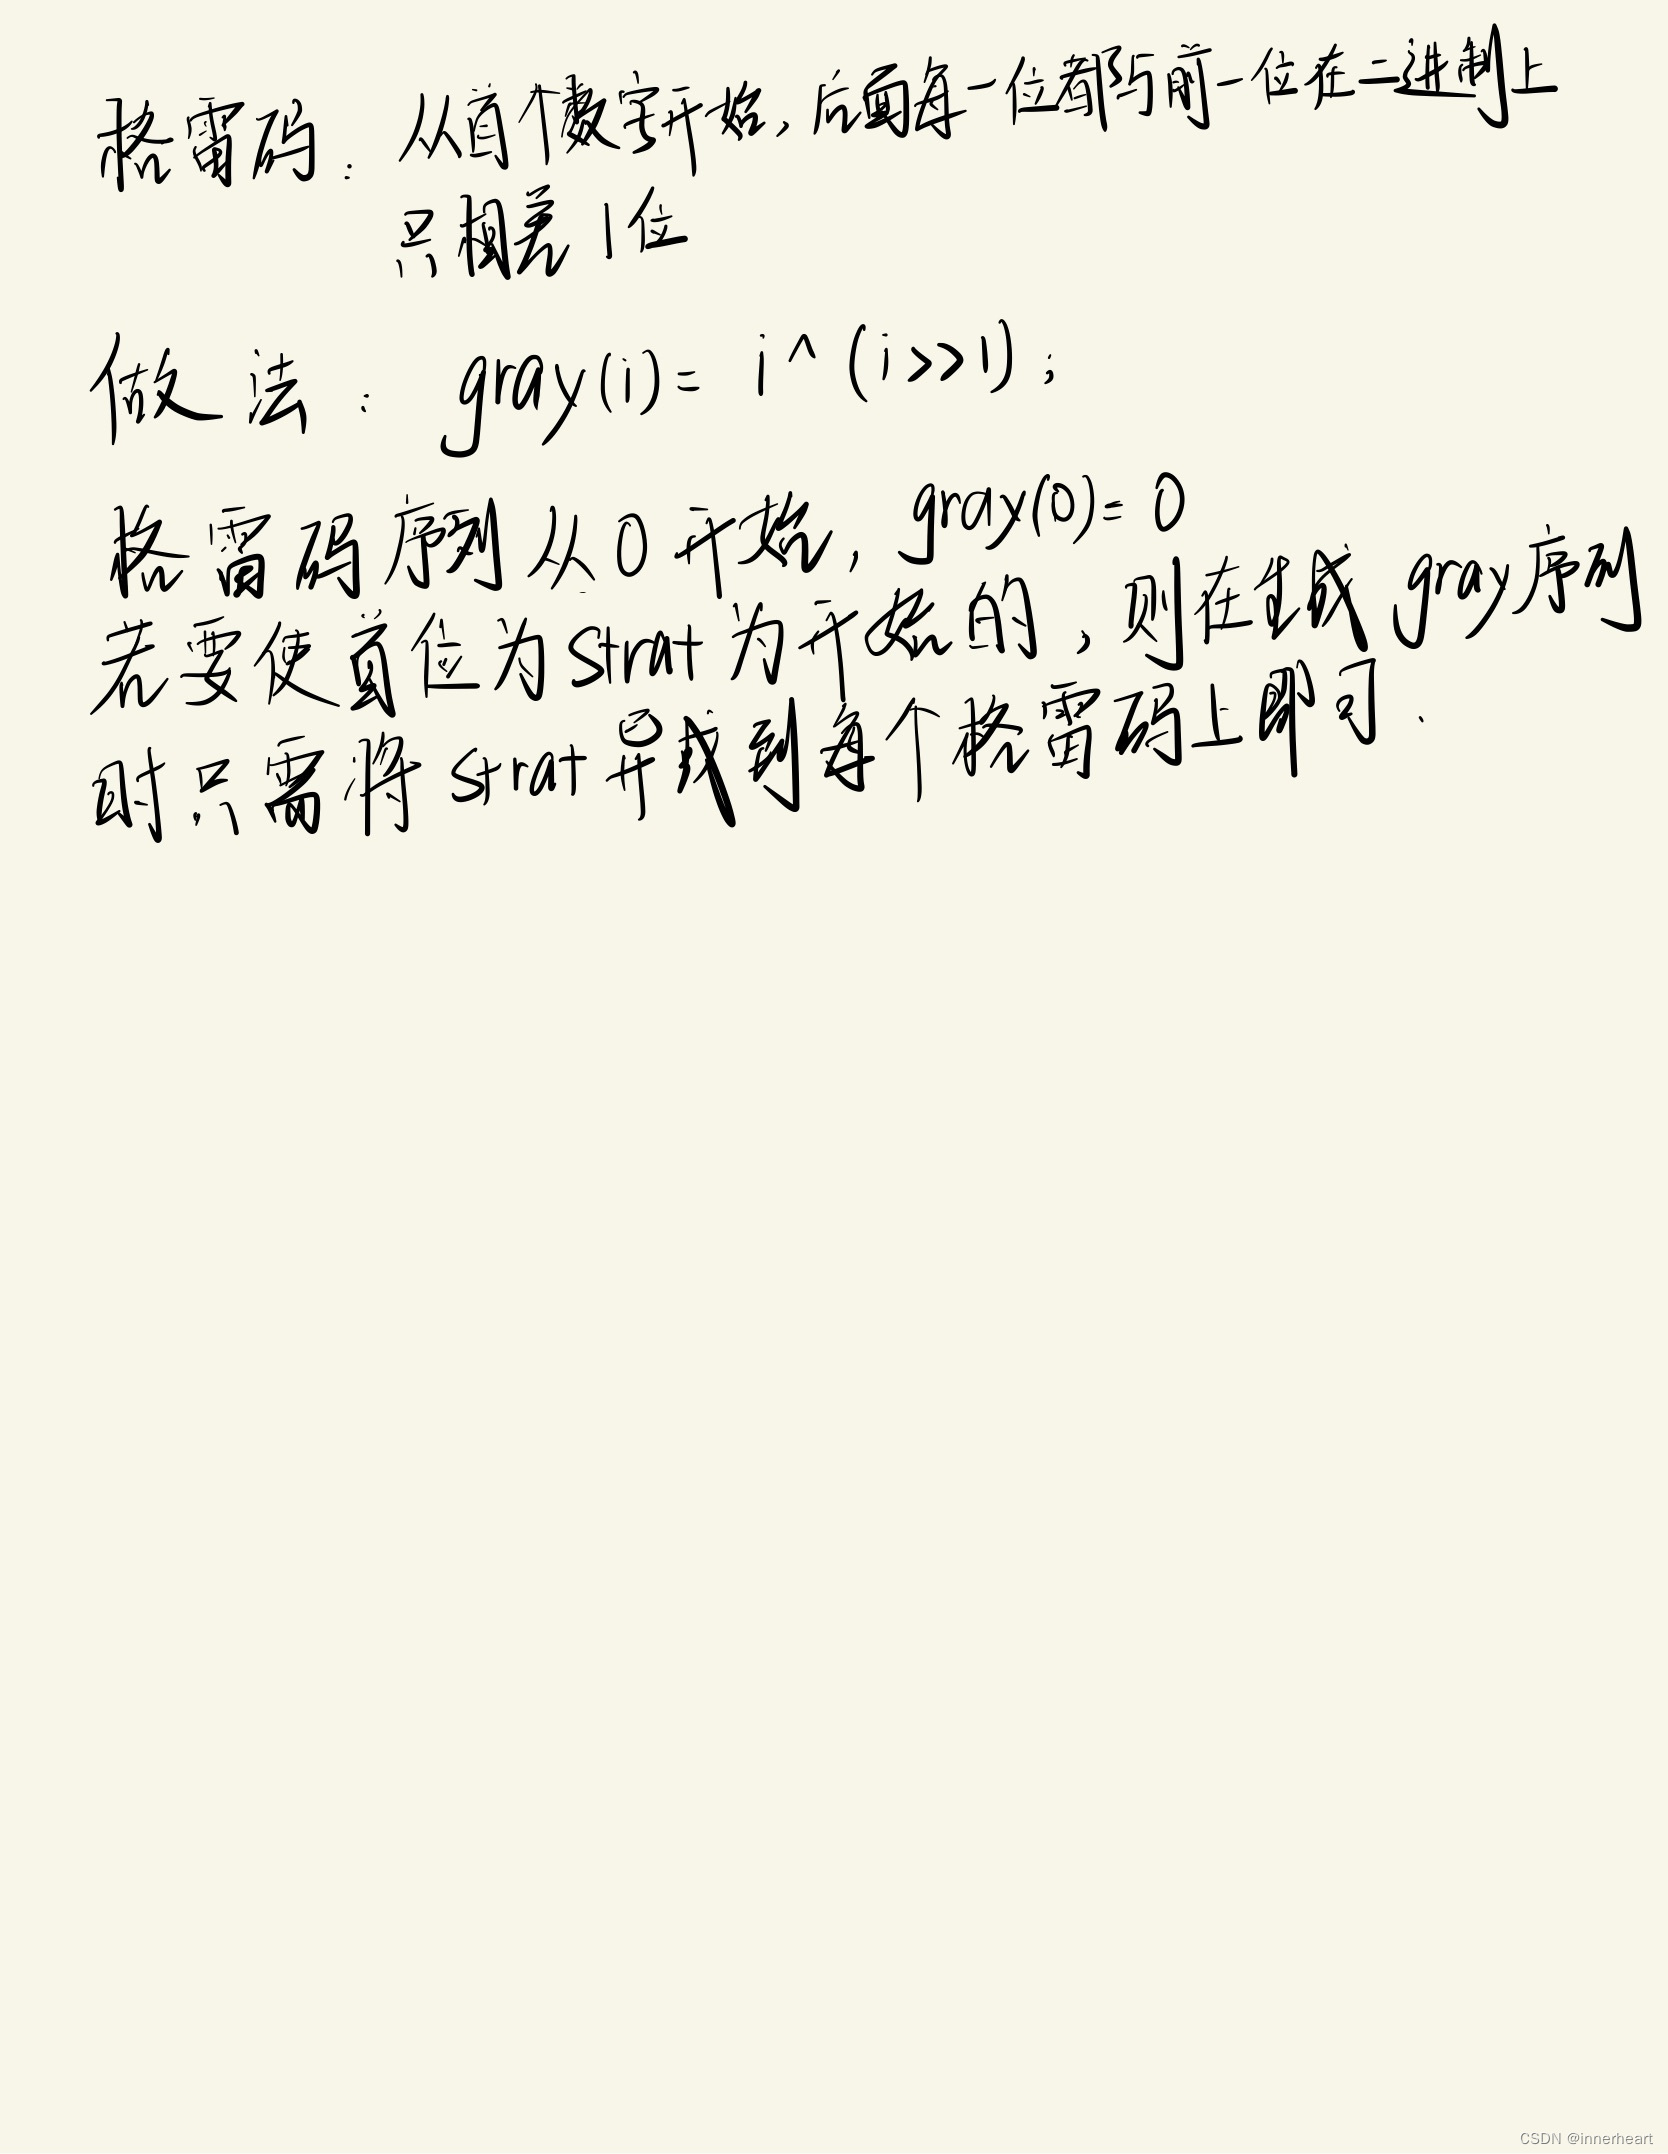 格雷码：从首个数字开始，后面每一位都与前一位在二进制上
只相差1位
做法：gray(i)= i^(i>>1);
格雷码序列从0开始，gray(0)=0
若要使首位为strat为开始的，则在生成gray序列
时只需将strat异或到每个格雷码上即可.
CSDN @innerheart